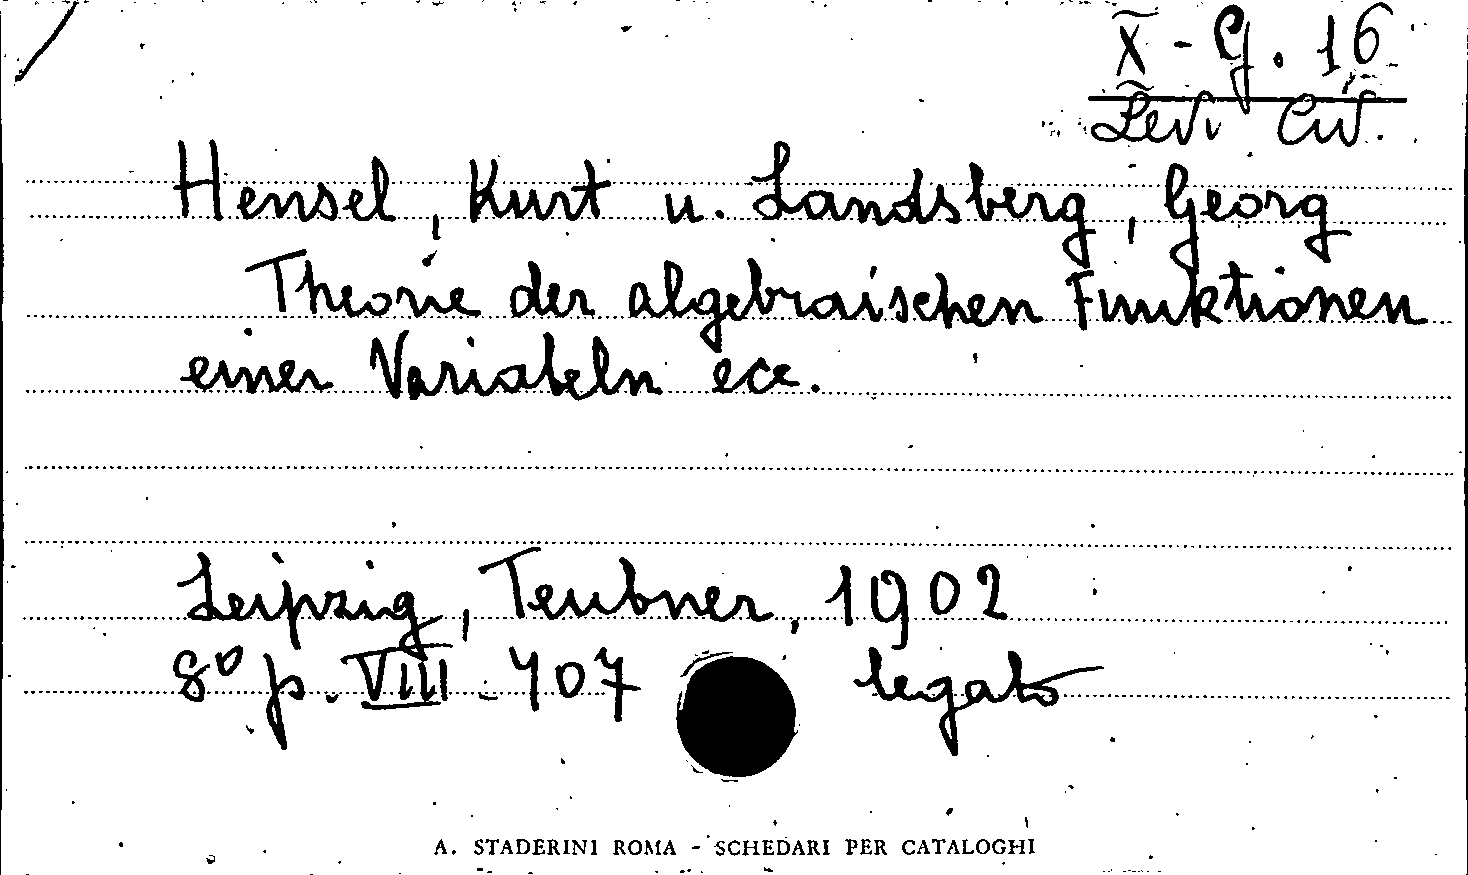 X - G. 16
Levi Civ.
Hensel, Kurt u. Landsberg, Georg
Theorie der algebraischen Funktionen
einer Variabeln ecc.
Leipzig, Teubner, 1902
8° p. VIII - 707 legato
A. STADERINI ROMA - SCHEDARI PER CATALOGHI